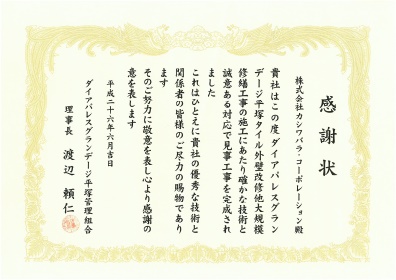 感謝状
株式会社カシワバラ・コーポレーション殿
貴社はこの度ダイアパレスグラン
デージ平塚タイル外壁改修他大規模
修繕工事の施工にあたり確かな技術と
誠意ある対応で見事工事を完成され
ました
これはひとえに貴社の優秀な技術と
関係者の皆様のご尽力の賜物であり
ます
そのご努力に敬意を表し心より感謝の
意を表します
平成二十六年六月吉日
ダイアパレスグランデージ平塚管理組合
理事長 渡辺 頼仁